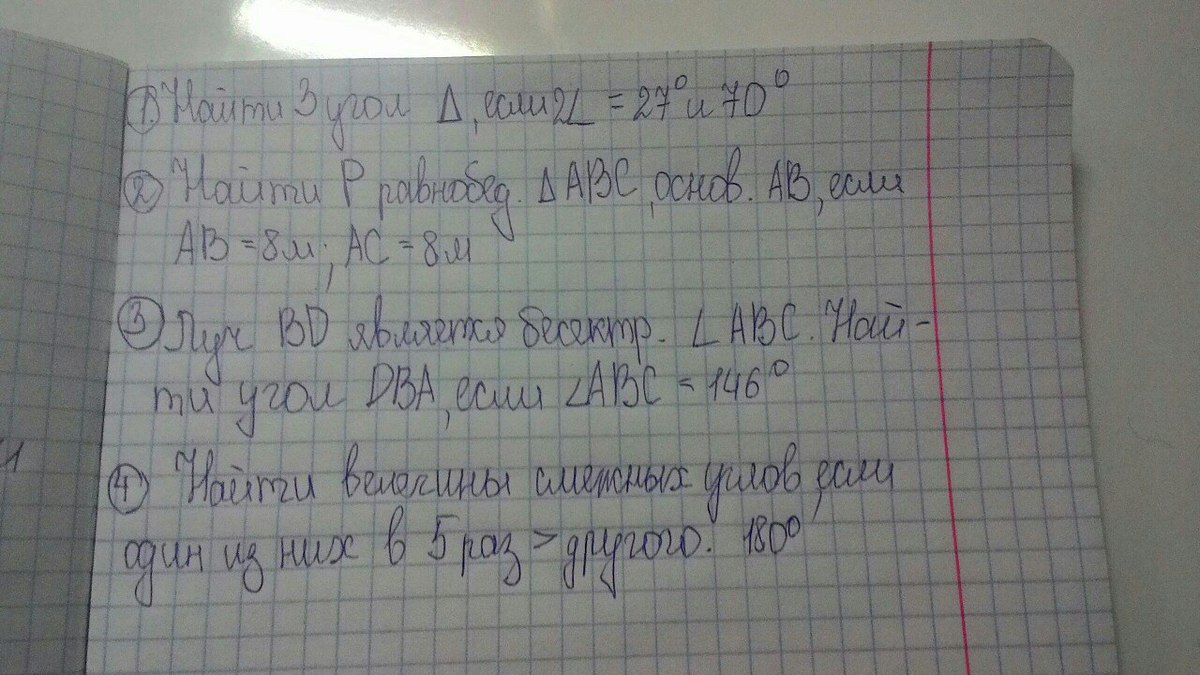 ① Найти 3 угол Δ, если 2∠ = 27° и 70°
② Найти P равнобед. Δ ABC, основ. AB, если
AB = 8м; AC = 8м
③ Луч BD является бесектр. ∠ ABC. Най-
ти угол DBA, если ∠ABC = 146°
④ Найти величины смежных углов, если
один из них в 5 раз > другого. 180°